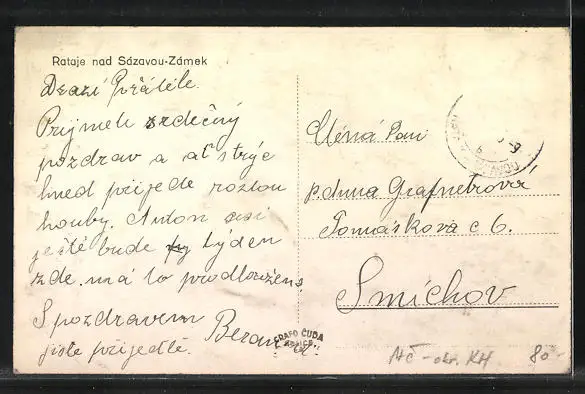 Rataje nad Sázavou-Zámek
Drazí Přátelé.
Prijmete srdečný
pozdrav a ať strýc
hned přijede rostou
houby. Anton asi
ještě bude týden
zde. má to prodloužený
S pozdravem Beran
jiste přijedte.
GRAFO ČUDA
HOLICE
Ctěná Paní
p. Anna Grafnetrová
Tomáškova c 6.
Smíchov
NAD SÁZAVOU
AČ - okr. KH
80-